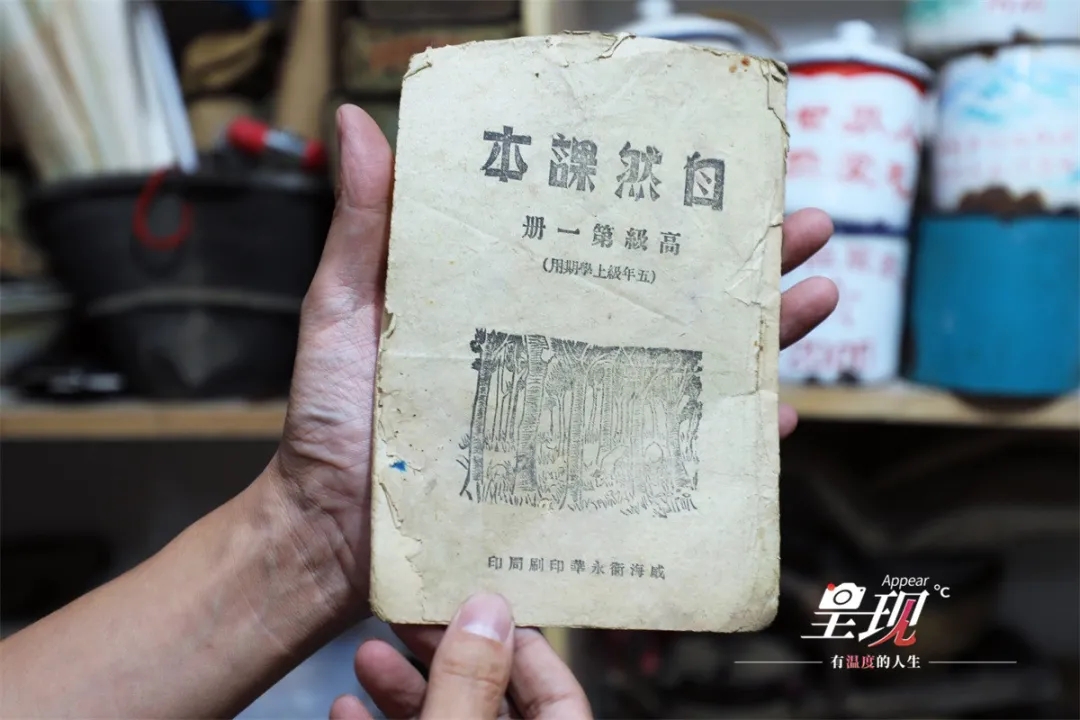 自然課本
高級第一册
(五年級上學期用)
威海衛永華印刷局印
Appear
呈现℃
有温度的人生